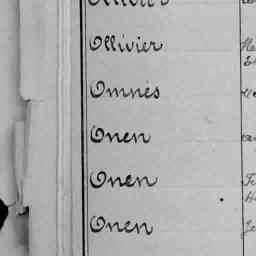 Ollivier
Omnès
Onen
Onen
Onen